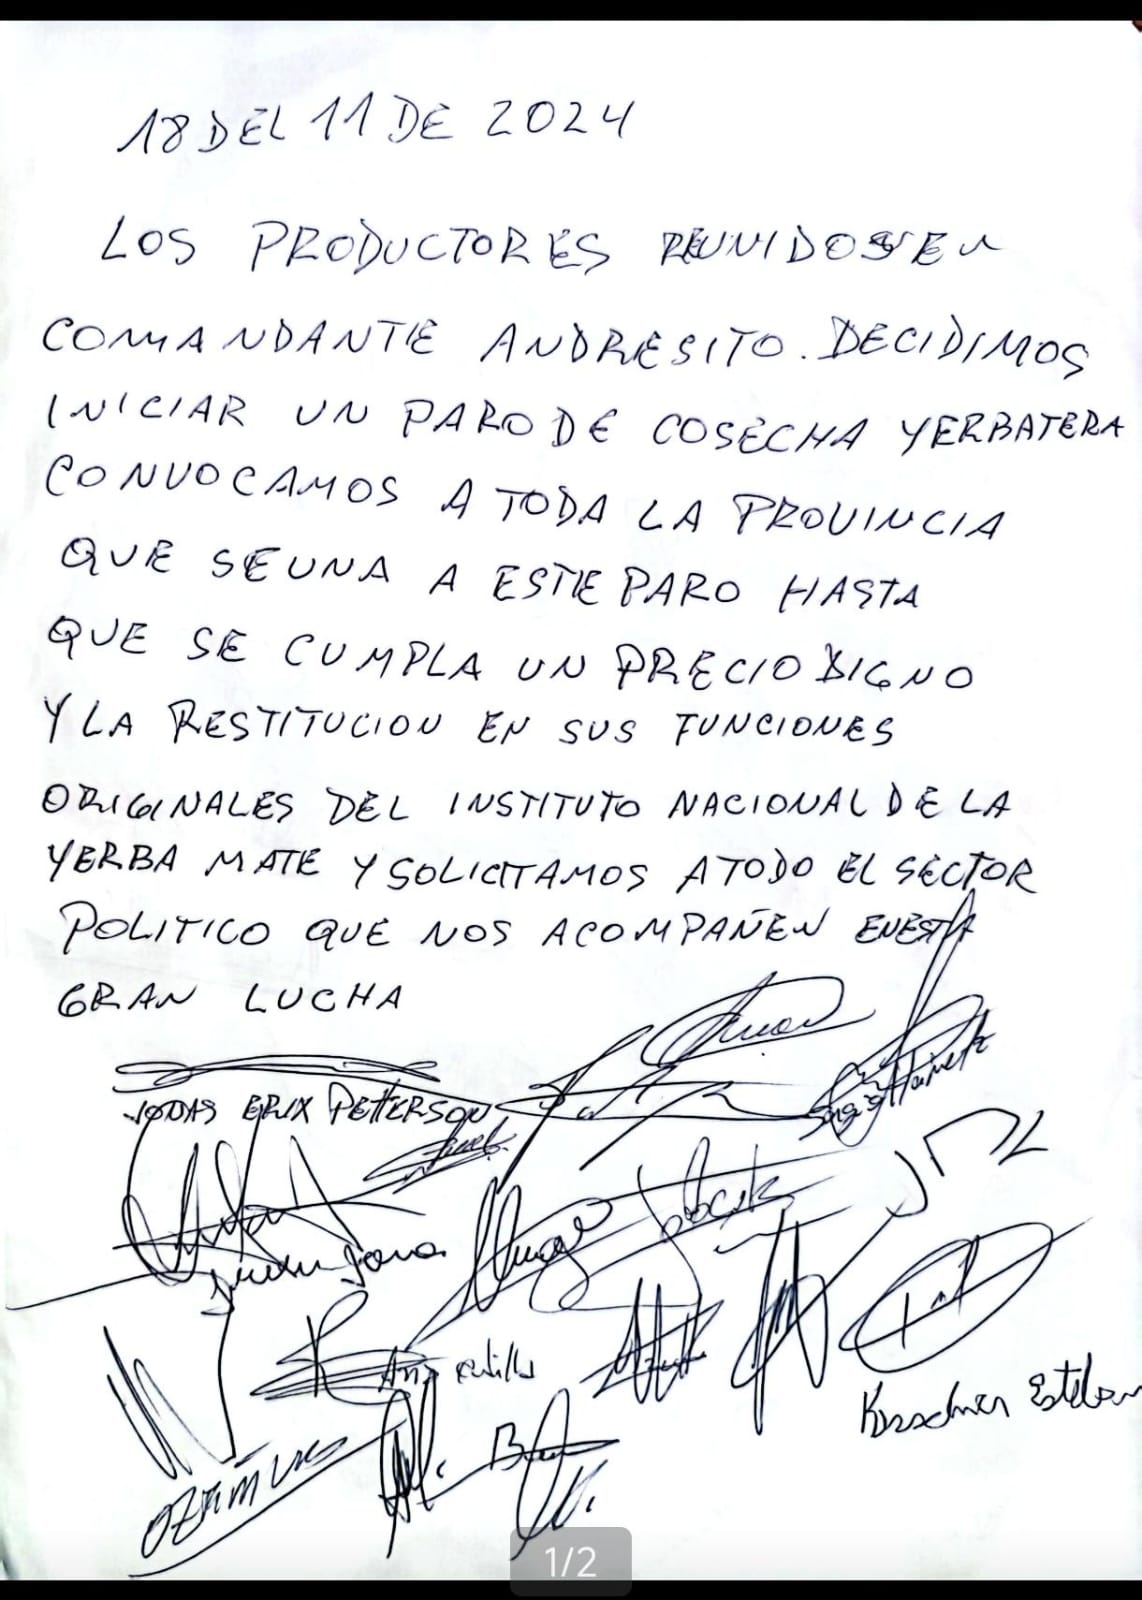 18 DEL 11 DE 2024
LOS PRODUCTORES REUNIDOS EN
COMANDANTE ANDRESITO. DECIDIMOS
INICIAR UN PARO DE COSECHA YERBATERA
CONVOCAMOS A TODA LA PROVINCIA
QUE SE UNA A ESTE PARO HASTA
QUE SE CUMPLA UN PRECIO DIGNO
Y LA RESTITUCION EN SUS FUNCIONES
ORIGINALES DEL INSTITUTO NACIONAL DE LA
YERBA MATE Y SOLICITAMOS A TODO EL SECTOR
POLITICO QUE NOS ACOMPAÑEN EN ESTA
GRAN LUCHA
JODAS ERIX PETTERSON
Hugo
Kirschner Esteban
1/2